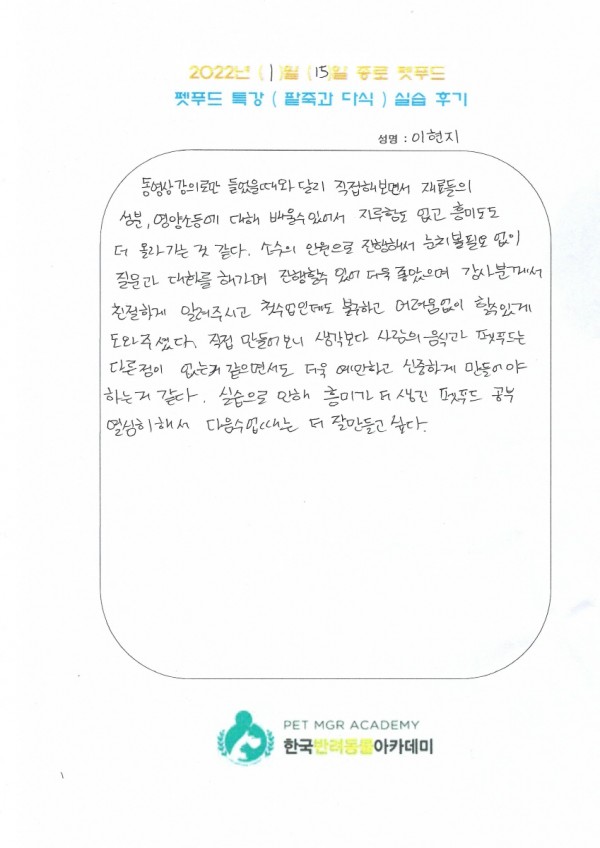 2022년 ( 1 )월 ( 15 )일 종로 펫푸드
펫푸드 특강 ( 팥죽과 다식 ) 실습 후기
성명 : 이현지
동영상강의로만 들었을때와 달리 직접해보면서 재료들의
성분, 영양소등에 대해 배울수있어서 지루함도 없고 흥미도도
더 올라가는 것 같다. 소수의 인원으로 진행해서 눈치볼필요 없이
질문과 대화를 해가며 진행할수 있어 더욱 좋았으며 강사분께서
친절하게 알려주시고 첫수업인데도 불구하고 어려움없이 할수있게
도와주셨다. 직접 만들어보니 생각보다 사람의음식과 펫푸드는
다른점이 없는거 같으면서도 더욱 예민하고 신중하게 만들어야
하는거 같다. 실습으로 인해 흥미가 더 생긴 펫푸드 공부
열심히해서 다음수업때는 더 잘만들고싶다.
PET MGR ACADEMY
한국반려동물아카데미